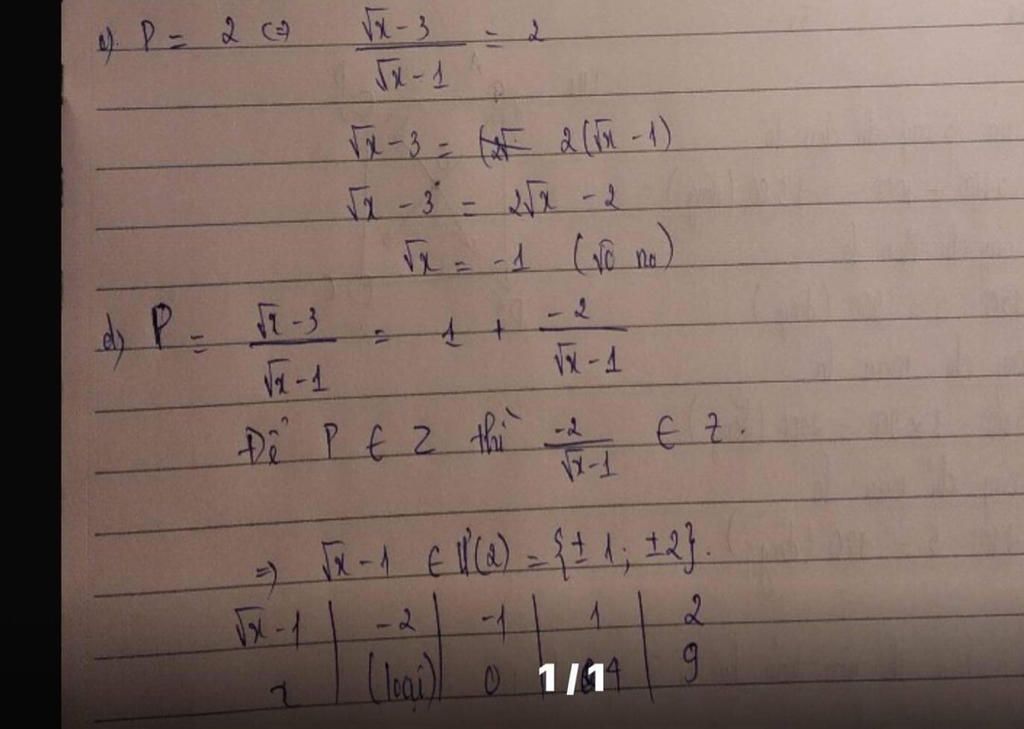 c). P = 2 ⇔ (√x - 3)/(√x - 1) = 2
√x - 3 = 2(√x - 1)
√x - 3 = 2√x - 2
√x = -1 (vô no)
d) P = (√x - 3)/(√x - 1) = 1 + (-2)/(√x - 1)
Để P ∈ Z thì (-2)/(√x - 1) ∈ Z.
⇒ √x - 1 ∈ Ư(2) = {± 1; ±2}.
√x - 1 | -2 | -1 | 1 | 2
x | (loại) | 0 | 4 | 9
1/1